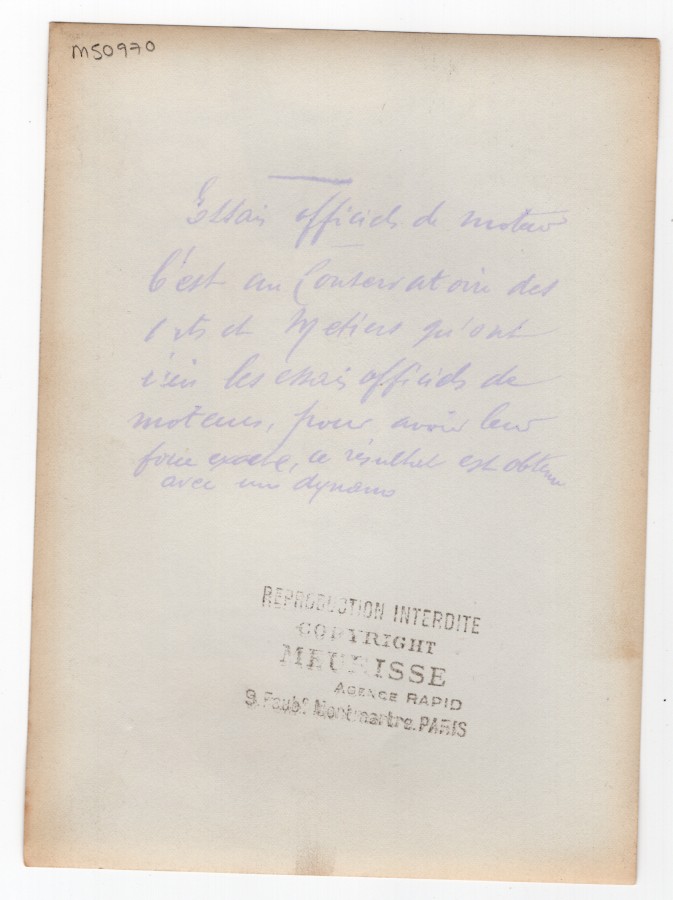 M50970
Essais officiels de moteur
C'est au Conservatoire des
Arts et Metiers qu'ont
les essais officiels de
moteurs, pour avoir leur
force exacte, ce résultat est obtenu
avec une dynamo
REPRODUCTION INTERDITE
COPYRIGHT
MEURISSE
AGENCE RAPID
9. Faubg Montmartre. PARIS